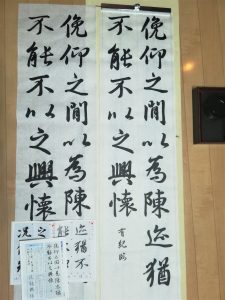 俛仰之間以為陳迹猶
不能不以之興懷
有紀臨
俛仰之間以為陳
不能不以之興懷